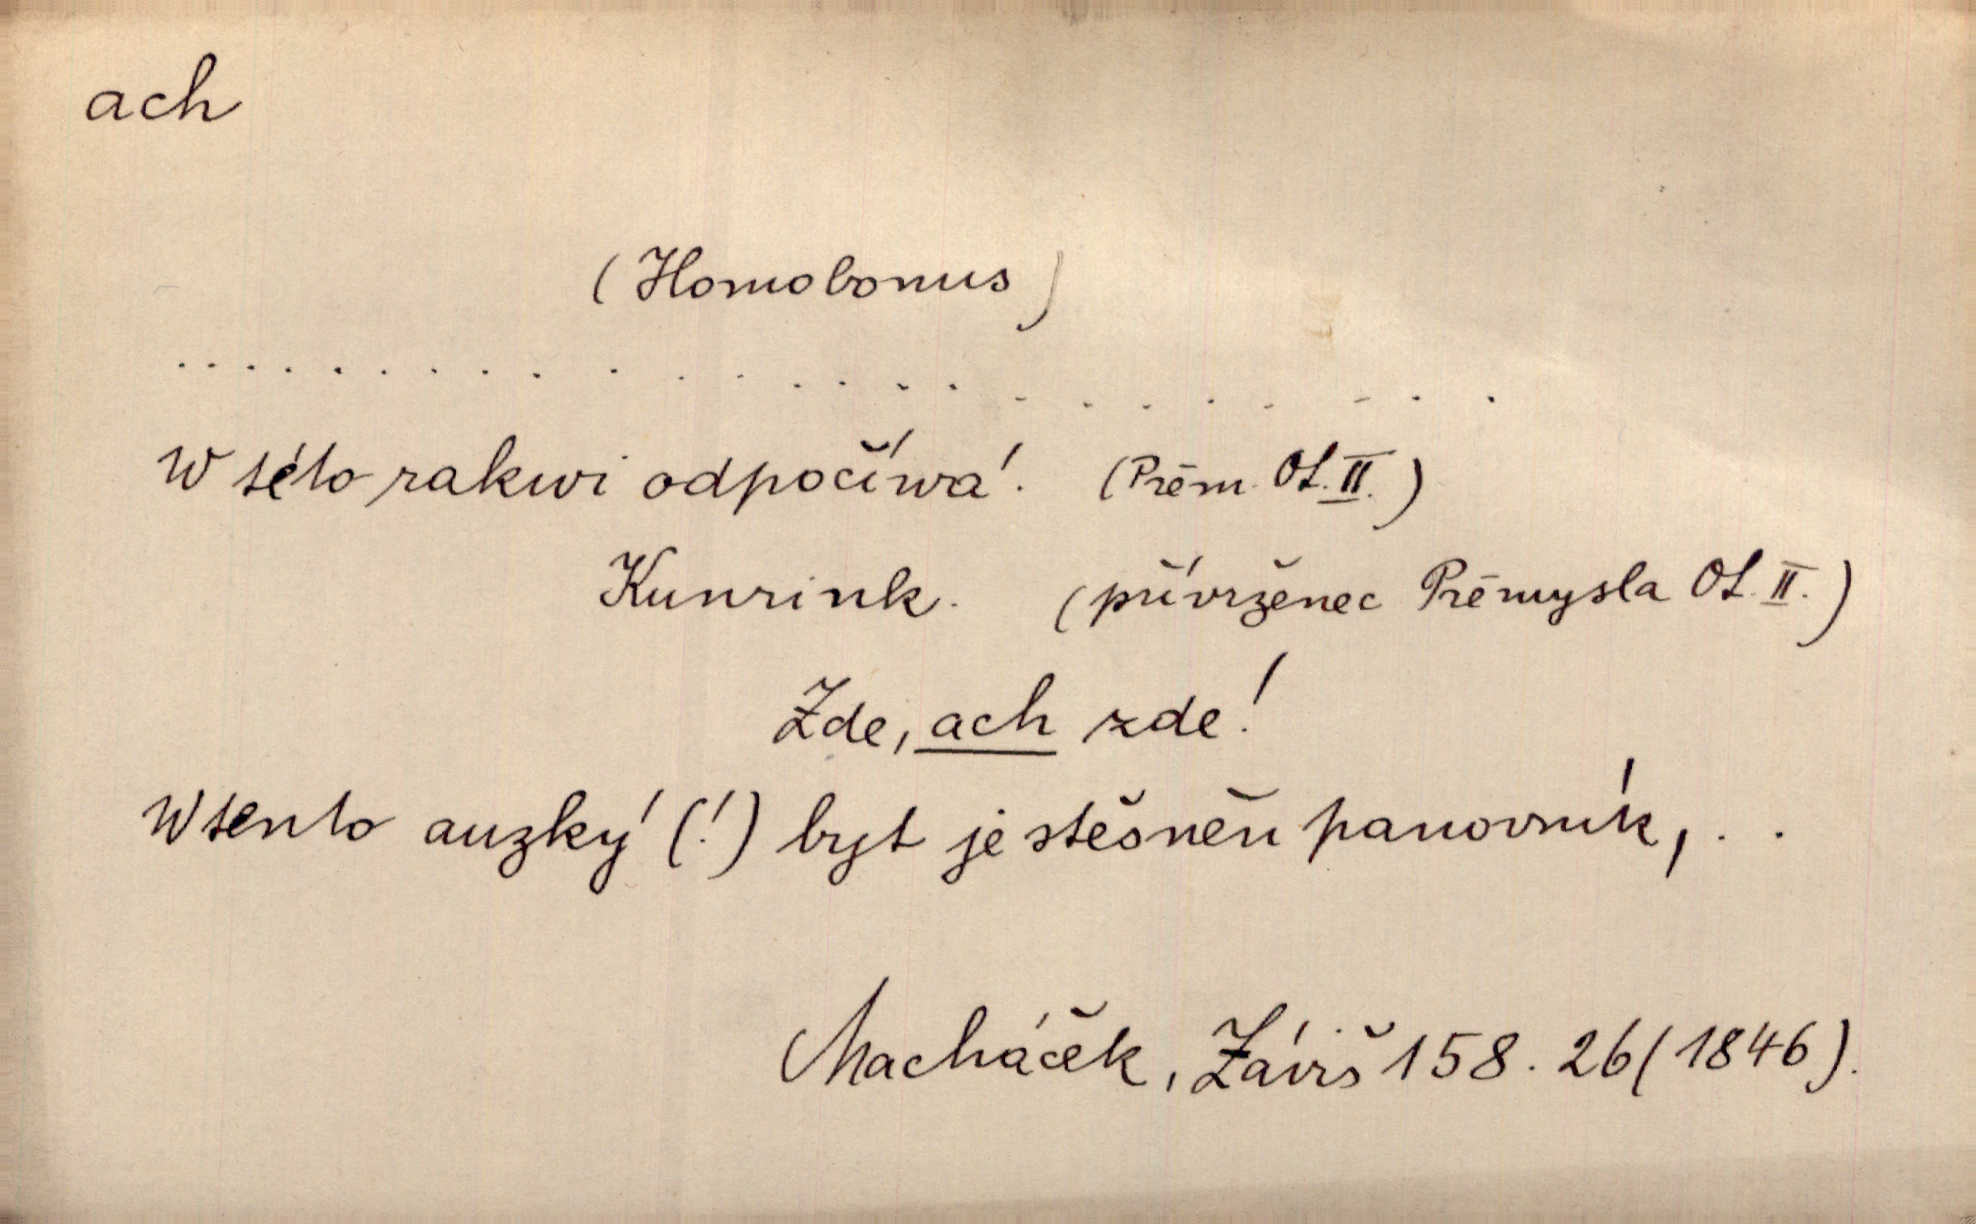 ach
(Homobonus)
. . . . . . . . . . . . . . . . . . . . . . . .
W této rakwi odpočíwá. (Přěm. Ot. II.)
Kunrink. (přívrženec Přěmysla Ot. II.)
Zde, ach zde!
W tento auzký (!) byt je stěsněn panovník, . .
Macháček, Záviš 158. 26 (1846).